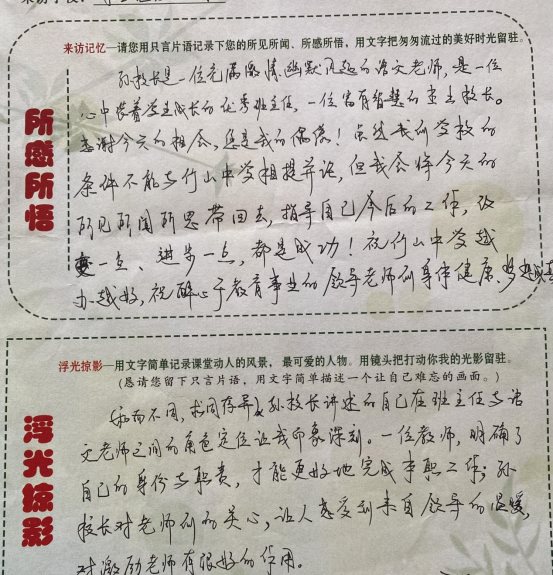 来访记忆—请您用只言片语记录下您的所见所闻、所感所悟，用文字把匆匆流过的美好时光留驻。
所感所悟
孙校长是一位充满激情、幽默风趣的语文老师，是一位
心中装着学生成长的优秀班主任，一位富有智慧的业主校长。
感谢今天的相会，您是我的偶像！虽然我们学校的
条件不能与竹山中学相提并论，但我会将今天的
所见所闻所思带回去，指导自己今后的工作，改
变一点、进步一点，都是成功！祝竹山中学越
办越好，祝醉心于教育事业的领导老师们身体健康、梦想成真
浮光掠影—用文字简单记录课堂动人的风景，最可爱的人物。用镜头把打动你我的光影留驻。
（恳请您留下只言片语，用文字简单描述一个让自己难忘的画面。）
浮光掠影
和而不同，求同存异，孙校长讲述的自己在班主任与语
文老师之间的角色定位让我印象深刻。一位教师，明确了
自己的身份与职责，才能更好地完成本职工作；孙
校长对老师们的关心，让人感受到来自领导的温暖，
对激励老师有很好的作用。